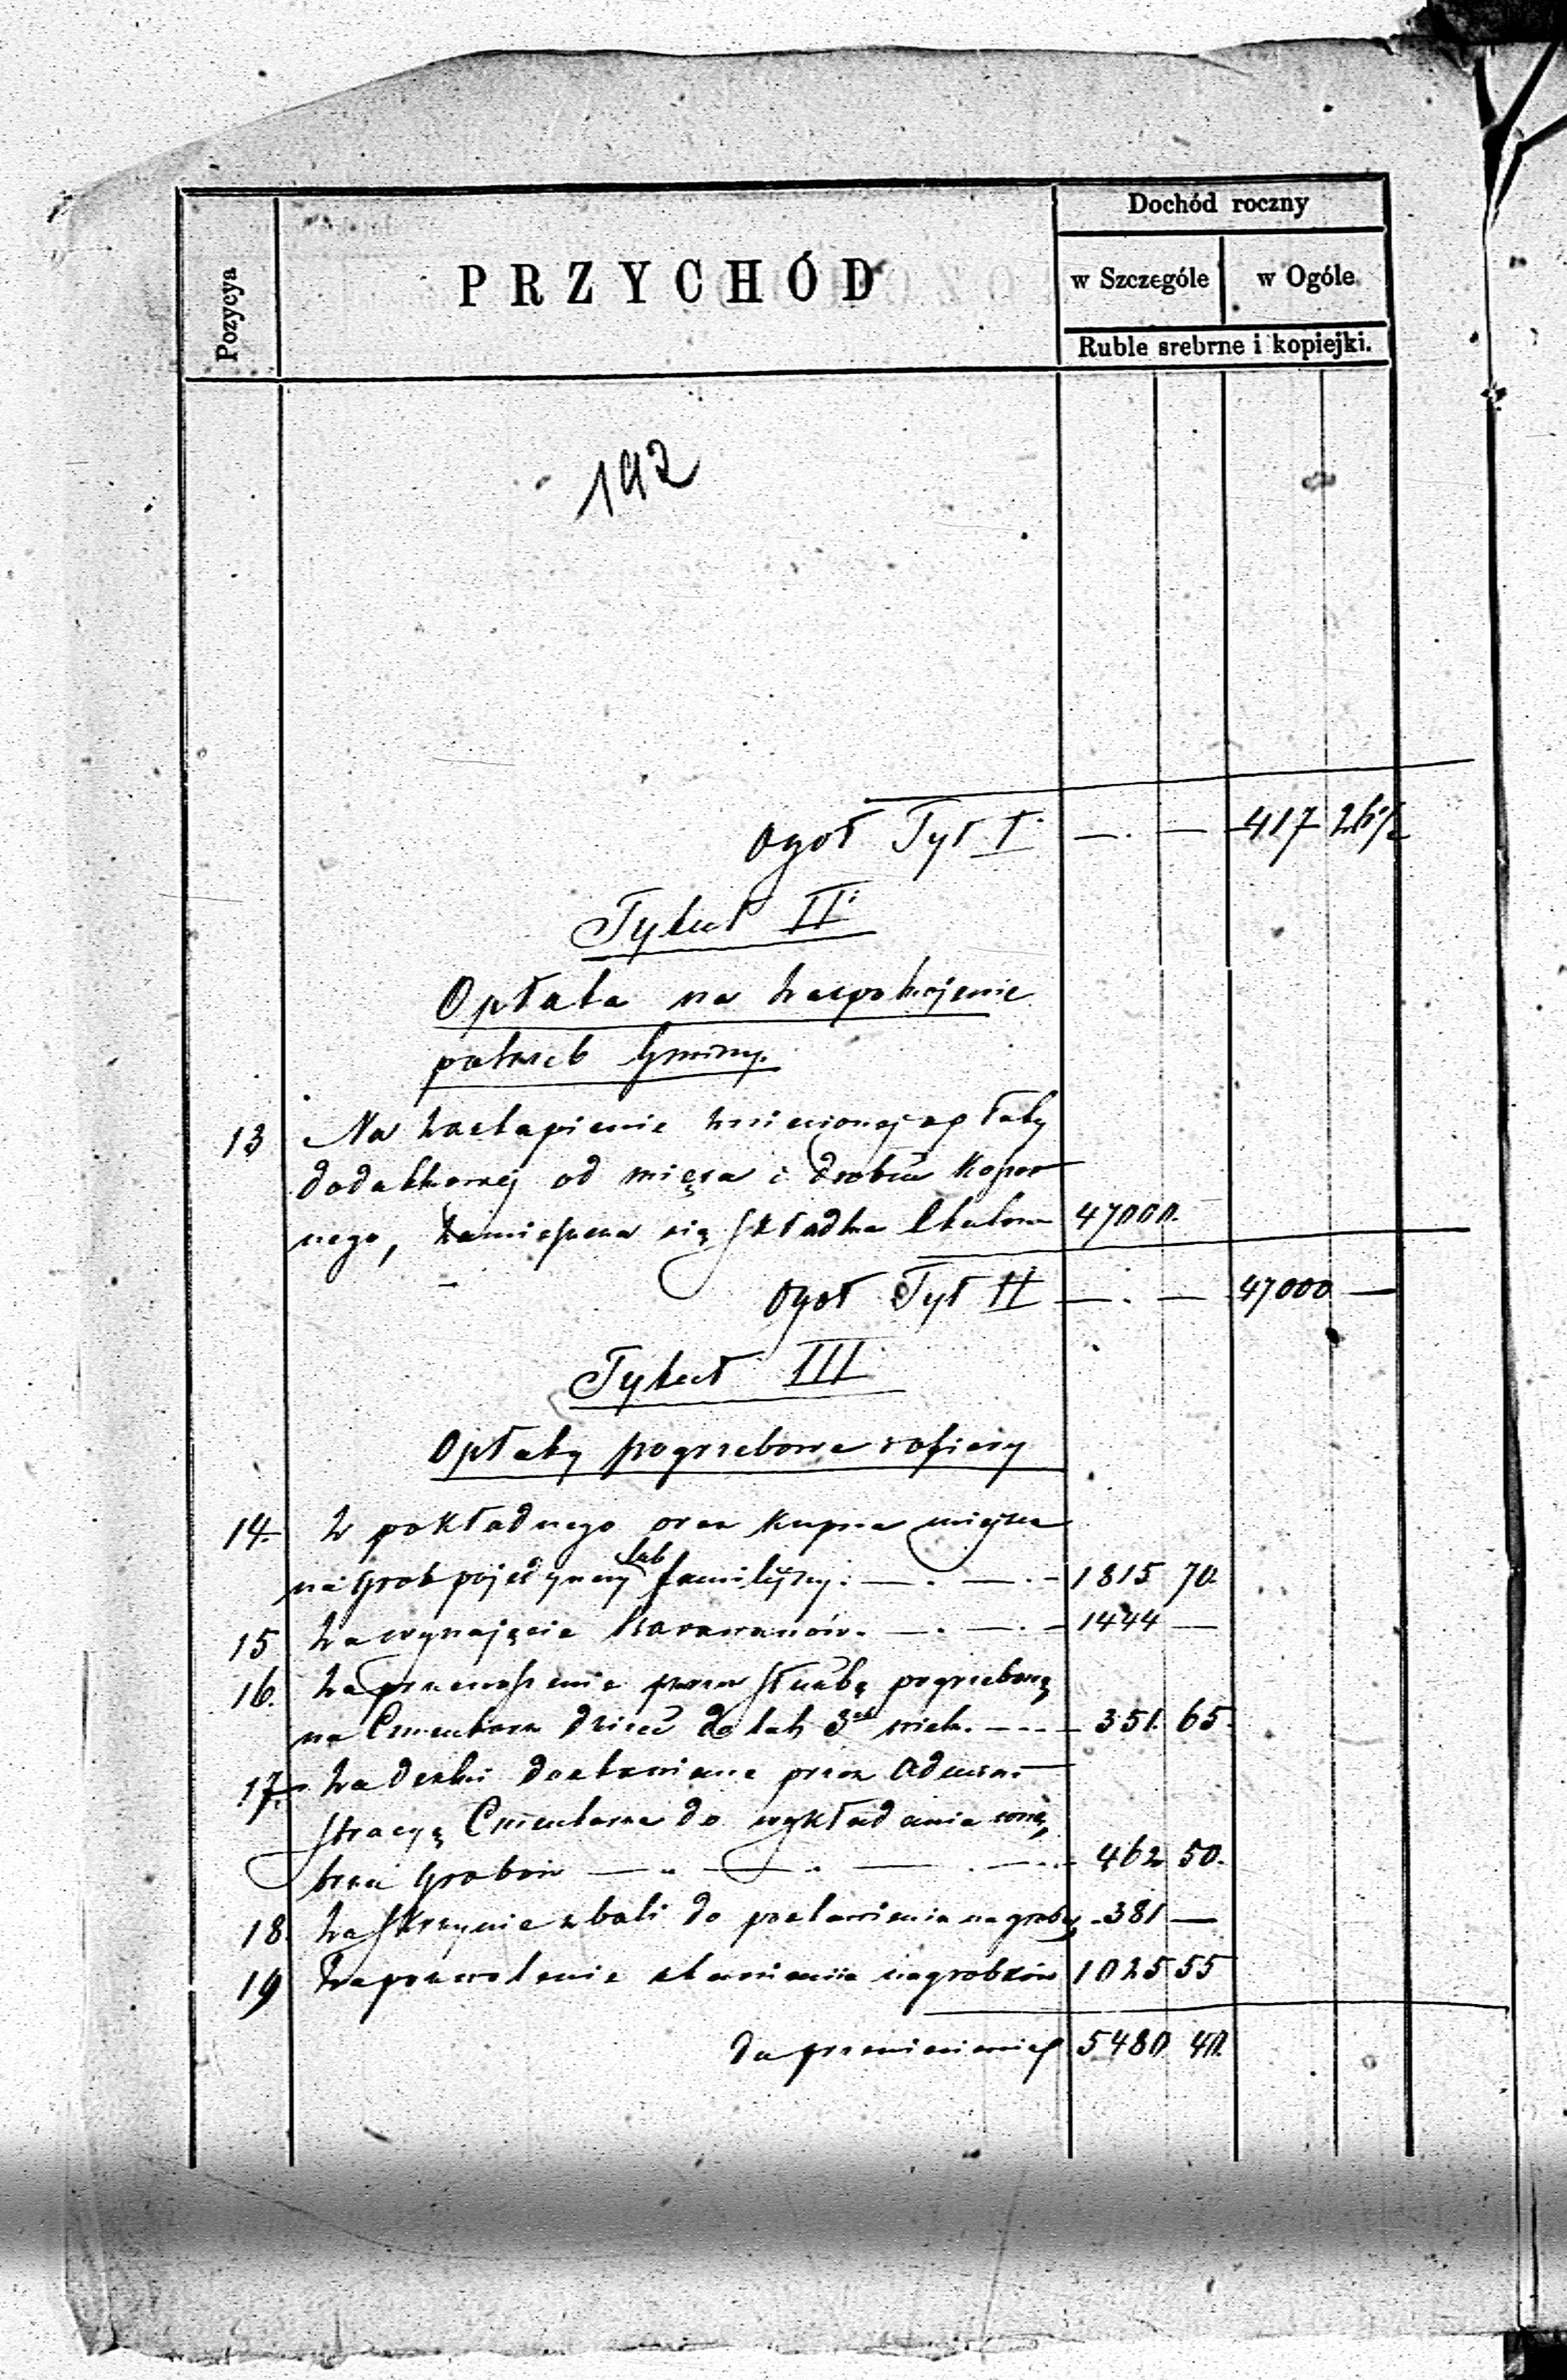 Dochód roczny
Pozycya
PRZYCHÓD
w Szczególe w Ogóle
Ruble srebrne i kopiejki.
192
Ogół Tyt I — . — 417 26½
Tytuł II
Opłata na zaspokojenie
potrzeb Gminy.
13 Na zastąpienie zniesionej opłaty
dodatkowej od mięsa i drobiu koszer
nego, zamieszcza się składka 47000.
Ogół Tyt II — . — 47000 —
Tytuł III
Opłaty pogrzebowe i ofiary
14. Z pokładnego oraz kupna miejsca
na grob pojedynczy lub familijny. — . — . – 1815 70.
15 Za wynajęcie karawanów. — . — . – 1444 —
16. Za przenoszenie przez służbę pogrzebową
na Cmentarz dzieci do lat 3ch wiek. — - - – 351. 65.
17. Za deski dostawiane przez Admini-
stracyę Cmentarza do wykładania wnę,
trza grobów — . — . — . — 462 50.
18. Za skrzynie z bali do postawienia na groby - 381 —
19 Za pozwolenie stawiania nagrobków 1025 55
do przeniesienia 5480 40.